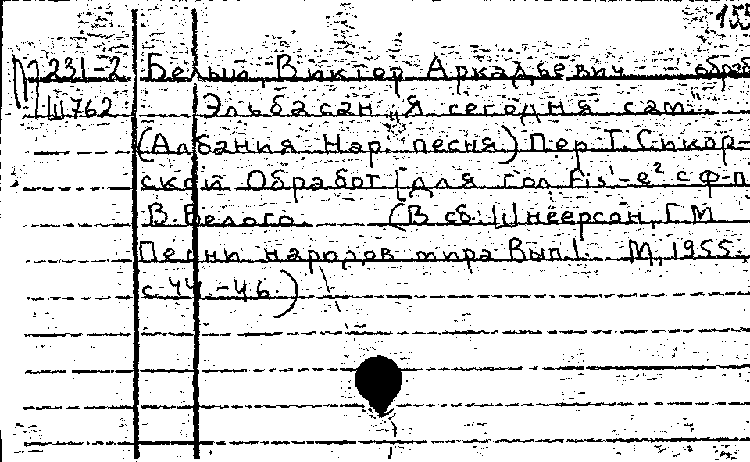 155
П231-2 Белый, Виктор Аркадьевич - обраб
Ш762 Эльбасан „Я сегодня сам"
(Албания Нар. песня) Пер. Т. Сикор-
ской Обработ [для гол. Fis¹-e² с ф-п
В. Белого. (В сб: Шнеерсон, Г. М
Песни народов мира Вып. 1. М, 1955.
с 44.-46.)